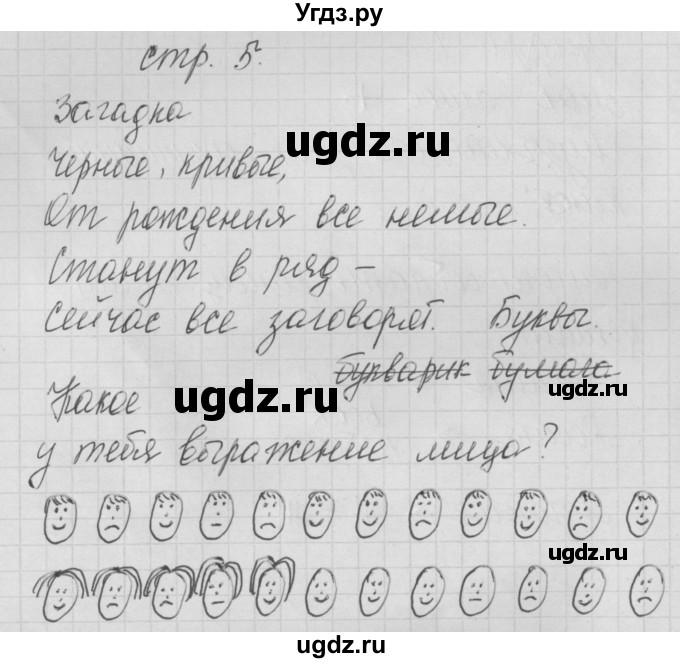 Угдз.ру
стр. 5.
Загадка
ugdz.ru
Черные, кривые,
От рождения все немые.
Станут в ряд –
Сейчас все заговорят. Буквы.
букварик бумага
Какое ugdz.ru
у тебя выражение лица?
ugdz.ru
ugdz.ru